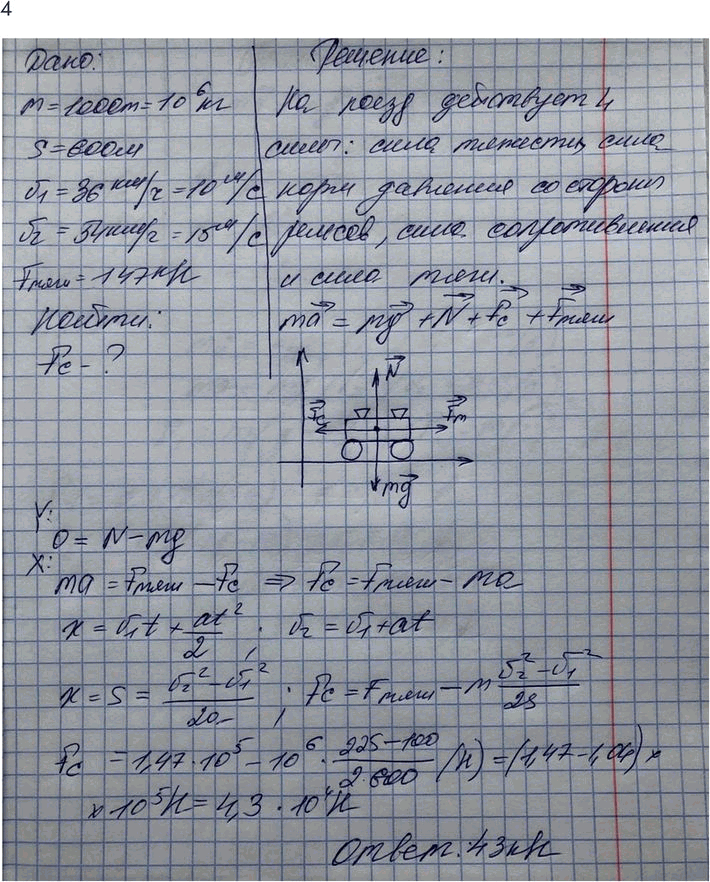 4
Дано:
m = 1000т = 10⁶ кг
S = 600м
v₁ = 36 км/ч = 10 м/с
v₂ = 54 км/ч = 15 м/с
Fтяги = 147 кН
Найти:
Fc - ?
Решение:
На поезд действует 4
силы: сила тяжести, сила
норм давления со стороны
рельсов, сила сопротивления
и сила тяги.
ma⃗ = mg⃗ + N⃗ + F⃗c + F⃗тяги
N⃗
F⃗c
F⃗т
mg⃗
Y:
0 = N - mg
X:
ma = Fтяги - Fc ⇒ Fc = Fтяги - ma
x = v₁t + at²/2, v₂ = v₁ + at
x = S = (v₂² - v₁²)/2a, ; Fc = Fтяги - m (v₂² - v₁²)/2S
Fc = 1,47·10⁵ - 10⁶ · (225-100)/(2·600) (Н) = (1,47-1,04) ×
× 10⁵Н = 4,3 · 10⁴Н
Ответ: 43кН